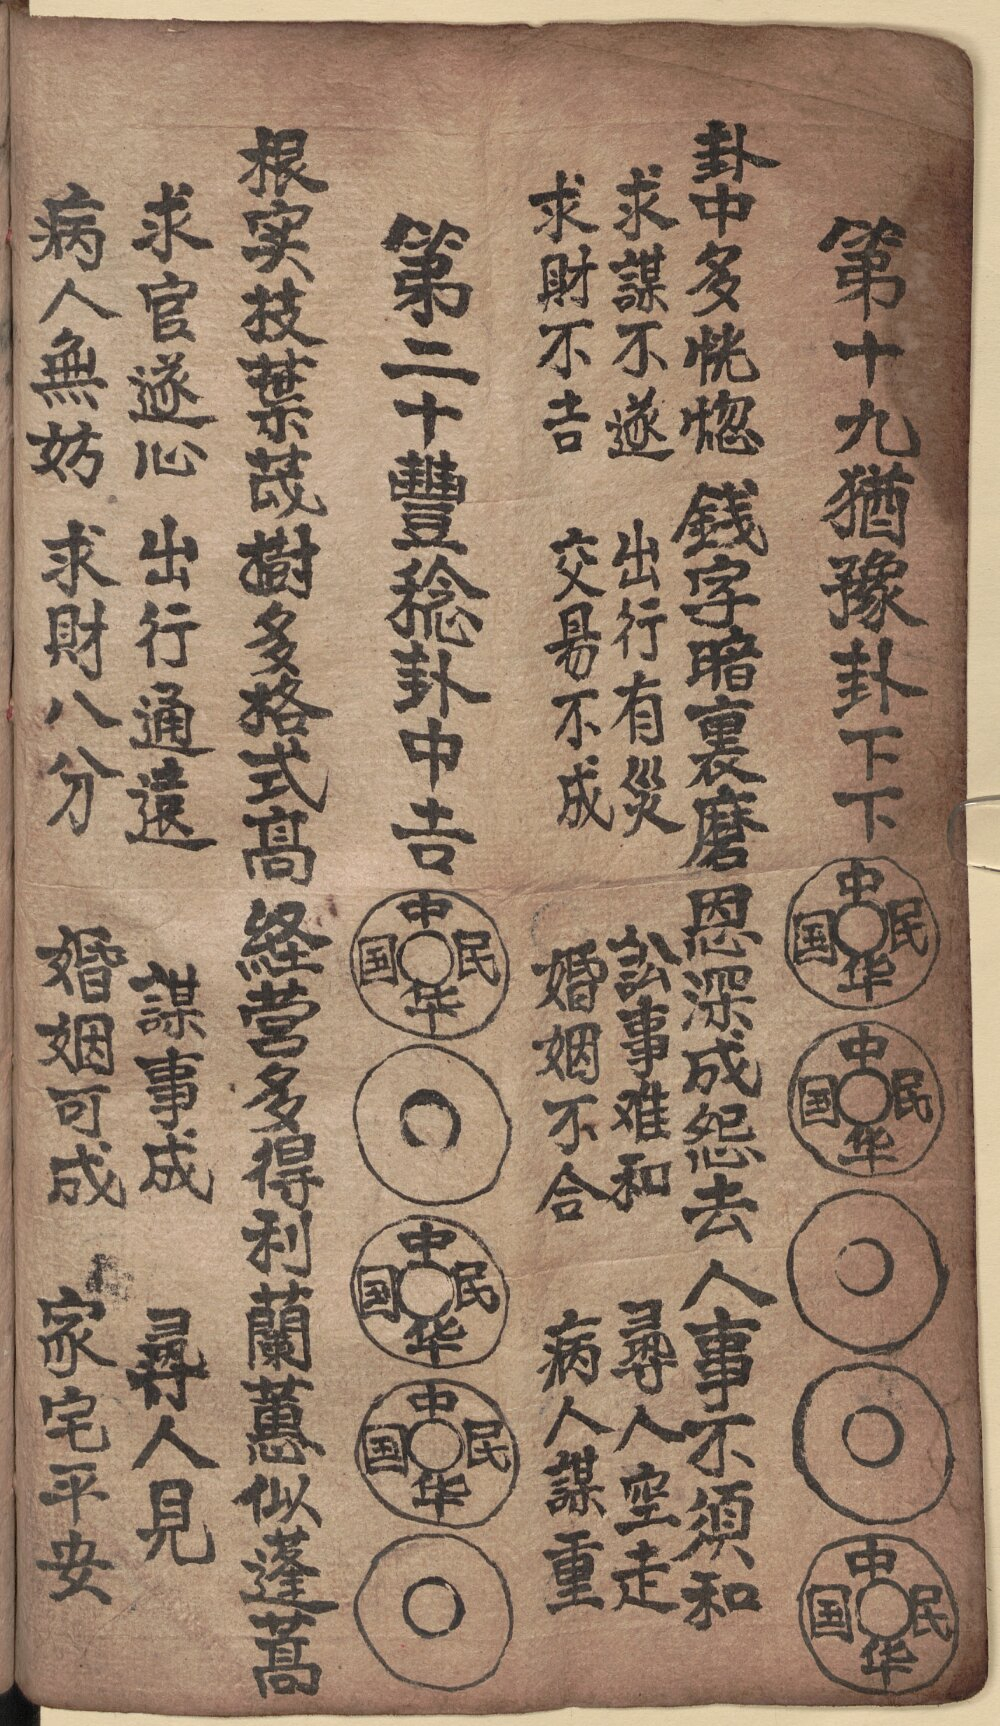 第十九猶豫卦下下
中华民国
中华民国
中华民国
卦中多恍惚 錢字暗裏磨 恩深成怨去 人事不須和
求謀不遂 出行有災 訟事难和 尋人空走
求財不吉 交易不成 婚姻不合 病人謀重
第二十豐稔卦中吉
中华民国
中华民国
中华民国
根实技葉茂 樹多格式高 経营多得利 蘭蕙似蓬蒿
求官遂心 出行通遠 謀事成 尋人見
病人無妨 求財八分 婚姻可成 家宅平安